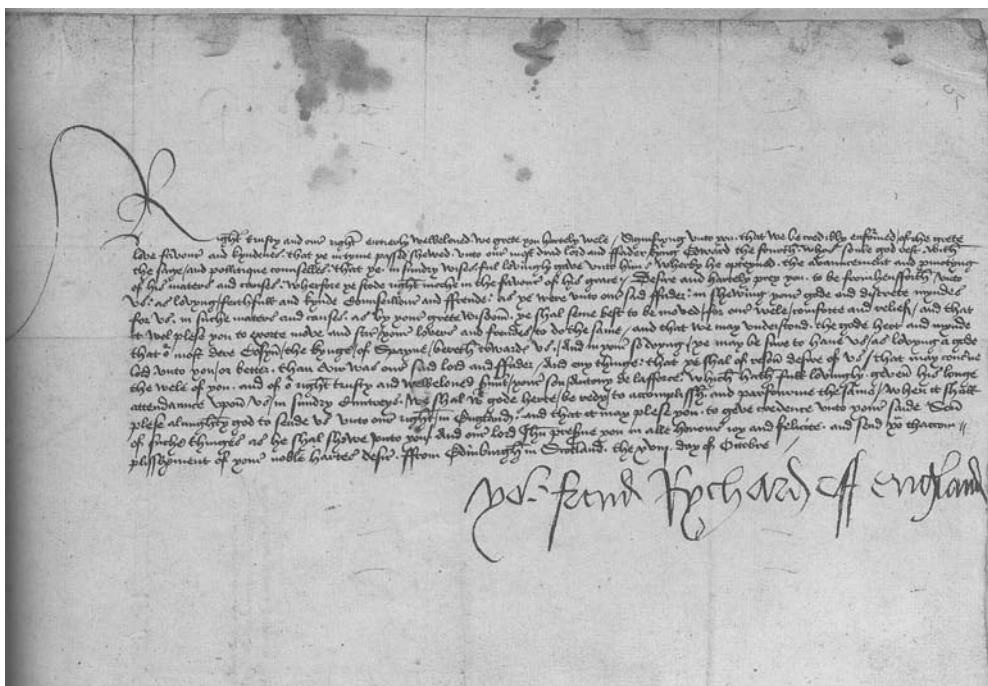 Right trusty and our right entierly welbeloved we grete you hartely wele / Signifiyng unto you that we be credibly enformed of the grete
love favour and kyndenes that ye in tyme passed shewed unto our most drad lord and ffader kyng Edward the fourth whose soule god rest with
the sage and politique counselles that ye in sundry wises ful lovingly gave unto him Wherby he opteyned the avauncement and punctyng
of his maters and causes Wherfore ye stode right moche in the favour of his grace / Desire and hartely prey you to be fromhensforth unto
us as lovyng feerthfull and kynde Counseillour and ffrende as ye were unto our said ffader in shewing your gode and discrete myndes
for us in suche maters and causes as by your grete wisdom ye shal seme best to be moved for our wele comforte and relief and that
it wol plese you to exorte move and stir your lovers and frendes to do the same and that we may understand the gode hert and mynde
that oʳ most dere Cosyn the kynge of Spayne bereth towards us And in your so doyng ye may be sure to have us as lovyng a gode
lord unto you or better than ever was our said lord and ffader And ony thinge that ye shal of reson desire of us that may concerne
the wele of you and of oʳ right trusty and welbeloved your son Antony de lasforce Which hath full lovingly geven his longe
attendance upon us in sundry Cuntreys We shal wᵗ gode herte be redy to accomplissh and parfourme the same When it shall
plese almighty god to sende us unto our right in England and that it may plese you to geve credence unto your saide Son
of suche thinges as he shal shewe unto you And our lord Jhu preserve you in alle honour joy and felicite and send yo thaccom
plisshyment of your noble hartes desir ffrom Edinburgh in Scotland the xviii day of Octobre
yoʳ frend Rychard off england